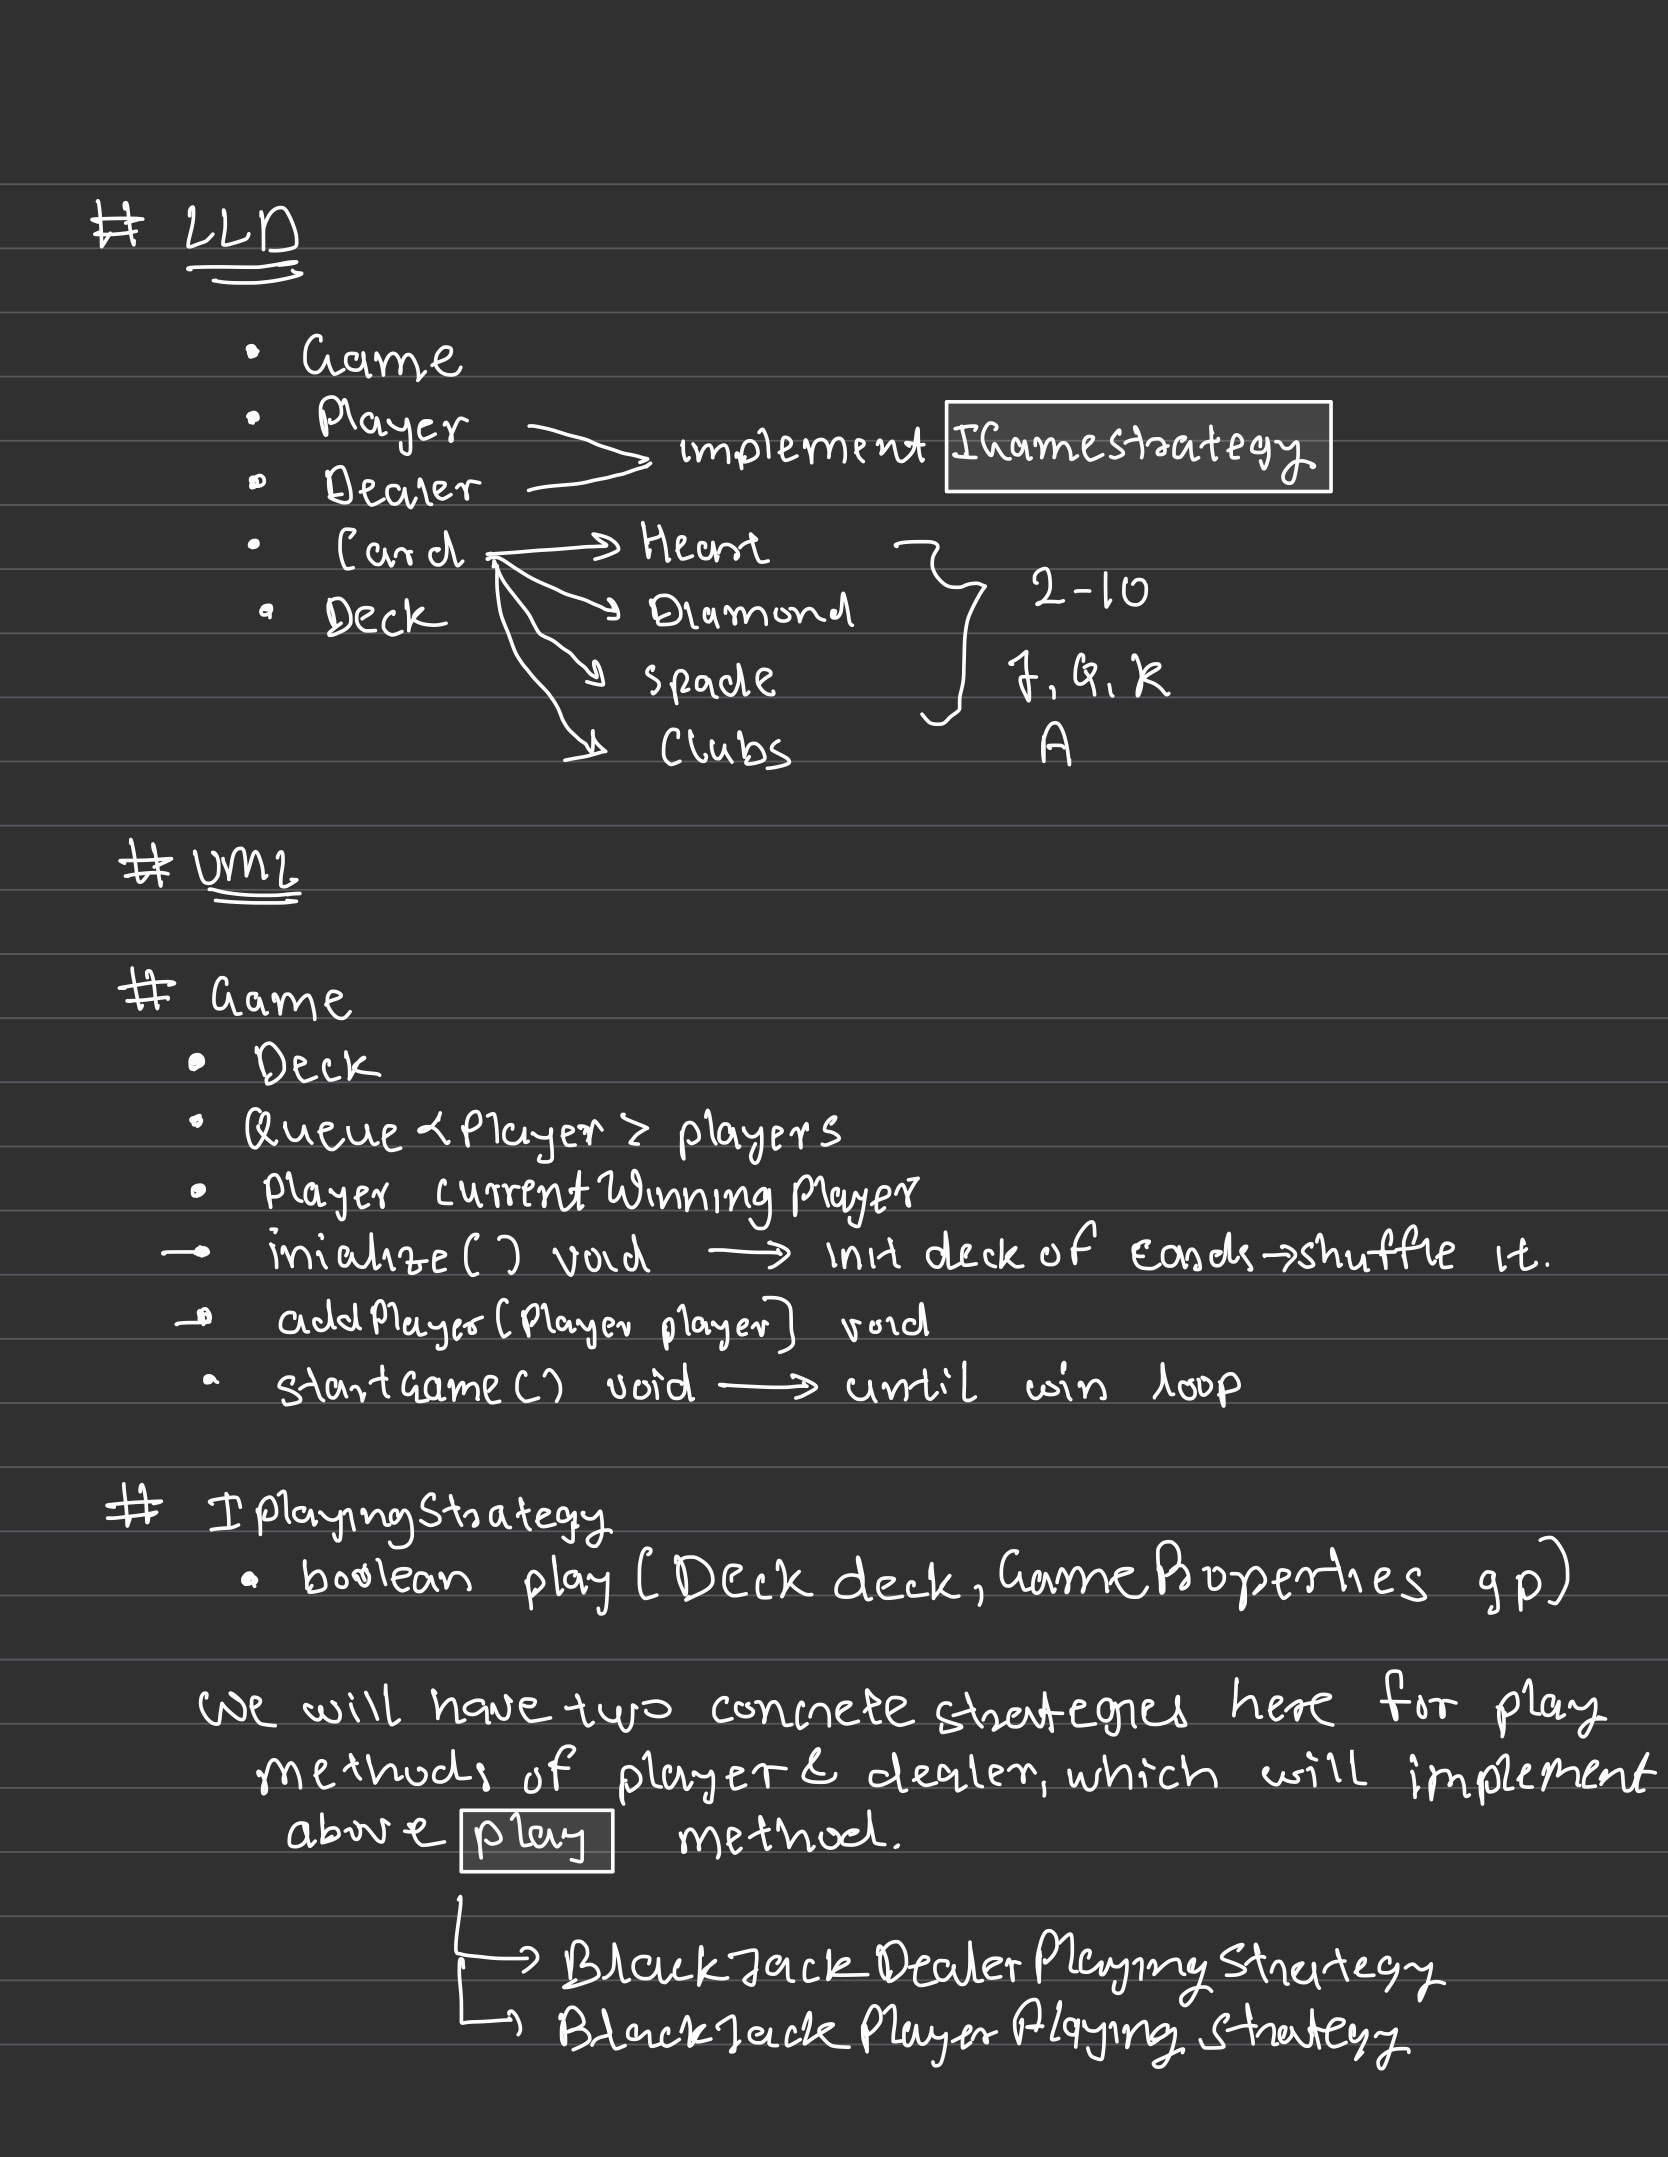 # LLD
• Game
• Player
implement IGamestrategy
• Dealer
• Card → Heart
2-10
• Deck
Diamond
J, Q, K
spade
A
Clubs
# UML
# Game
• Deck
• Queue <Player> players
• Player currentWinningPlayer
inialize() void → init deck of cards → shuffle it.
addPlayer(Player player) void
• startGame() void → until win loop
# IplayingStrategy
• boolean play (Deck deck, GameProperties gp)
We will have two concrete strategies here for play
methods of player & dealer, which will implement
above play method.
→ BlackJackDealerPlayingStrategy
→ BlackJackPlayerPlayingStrategy